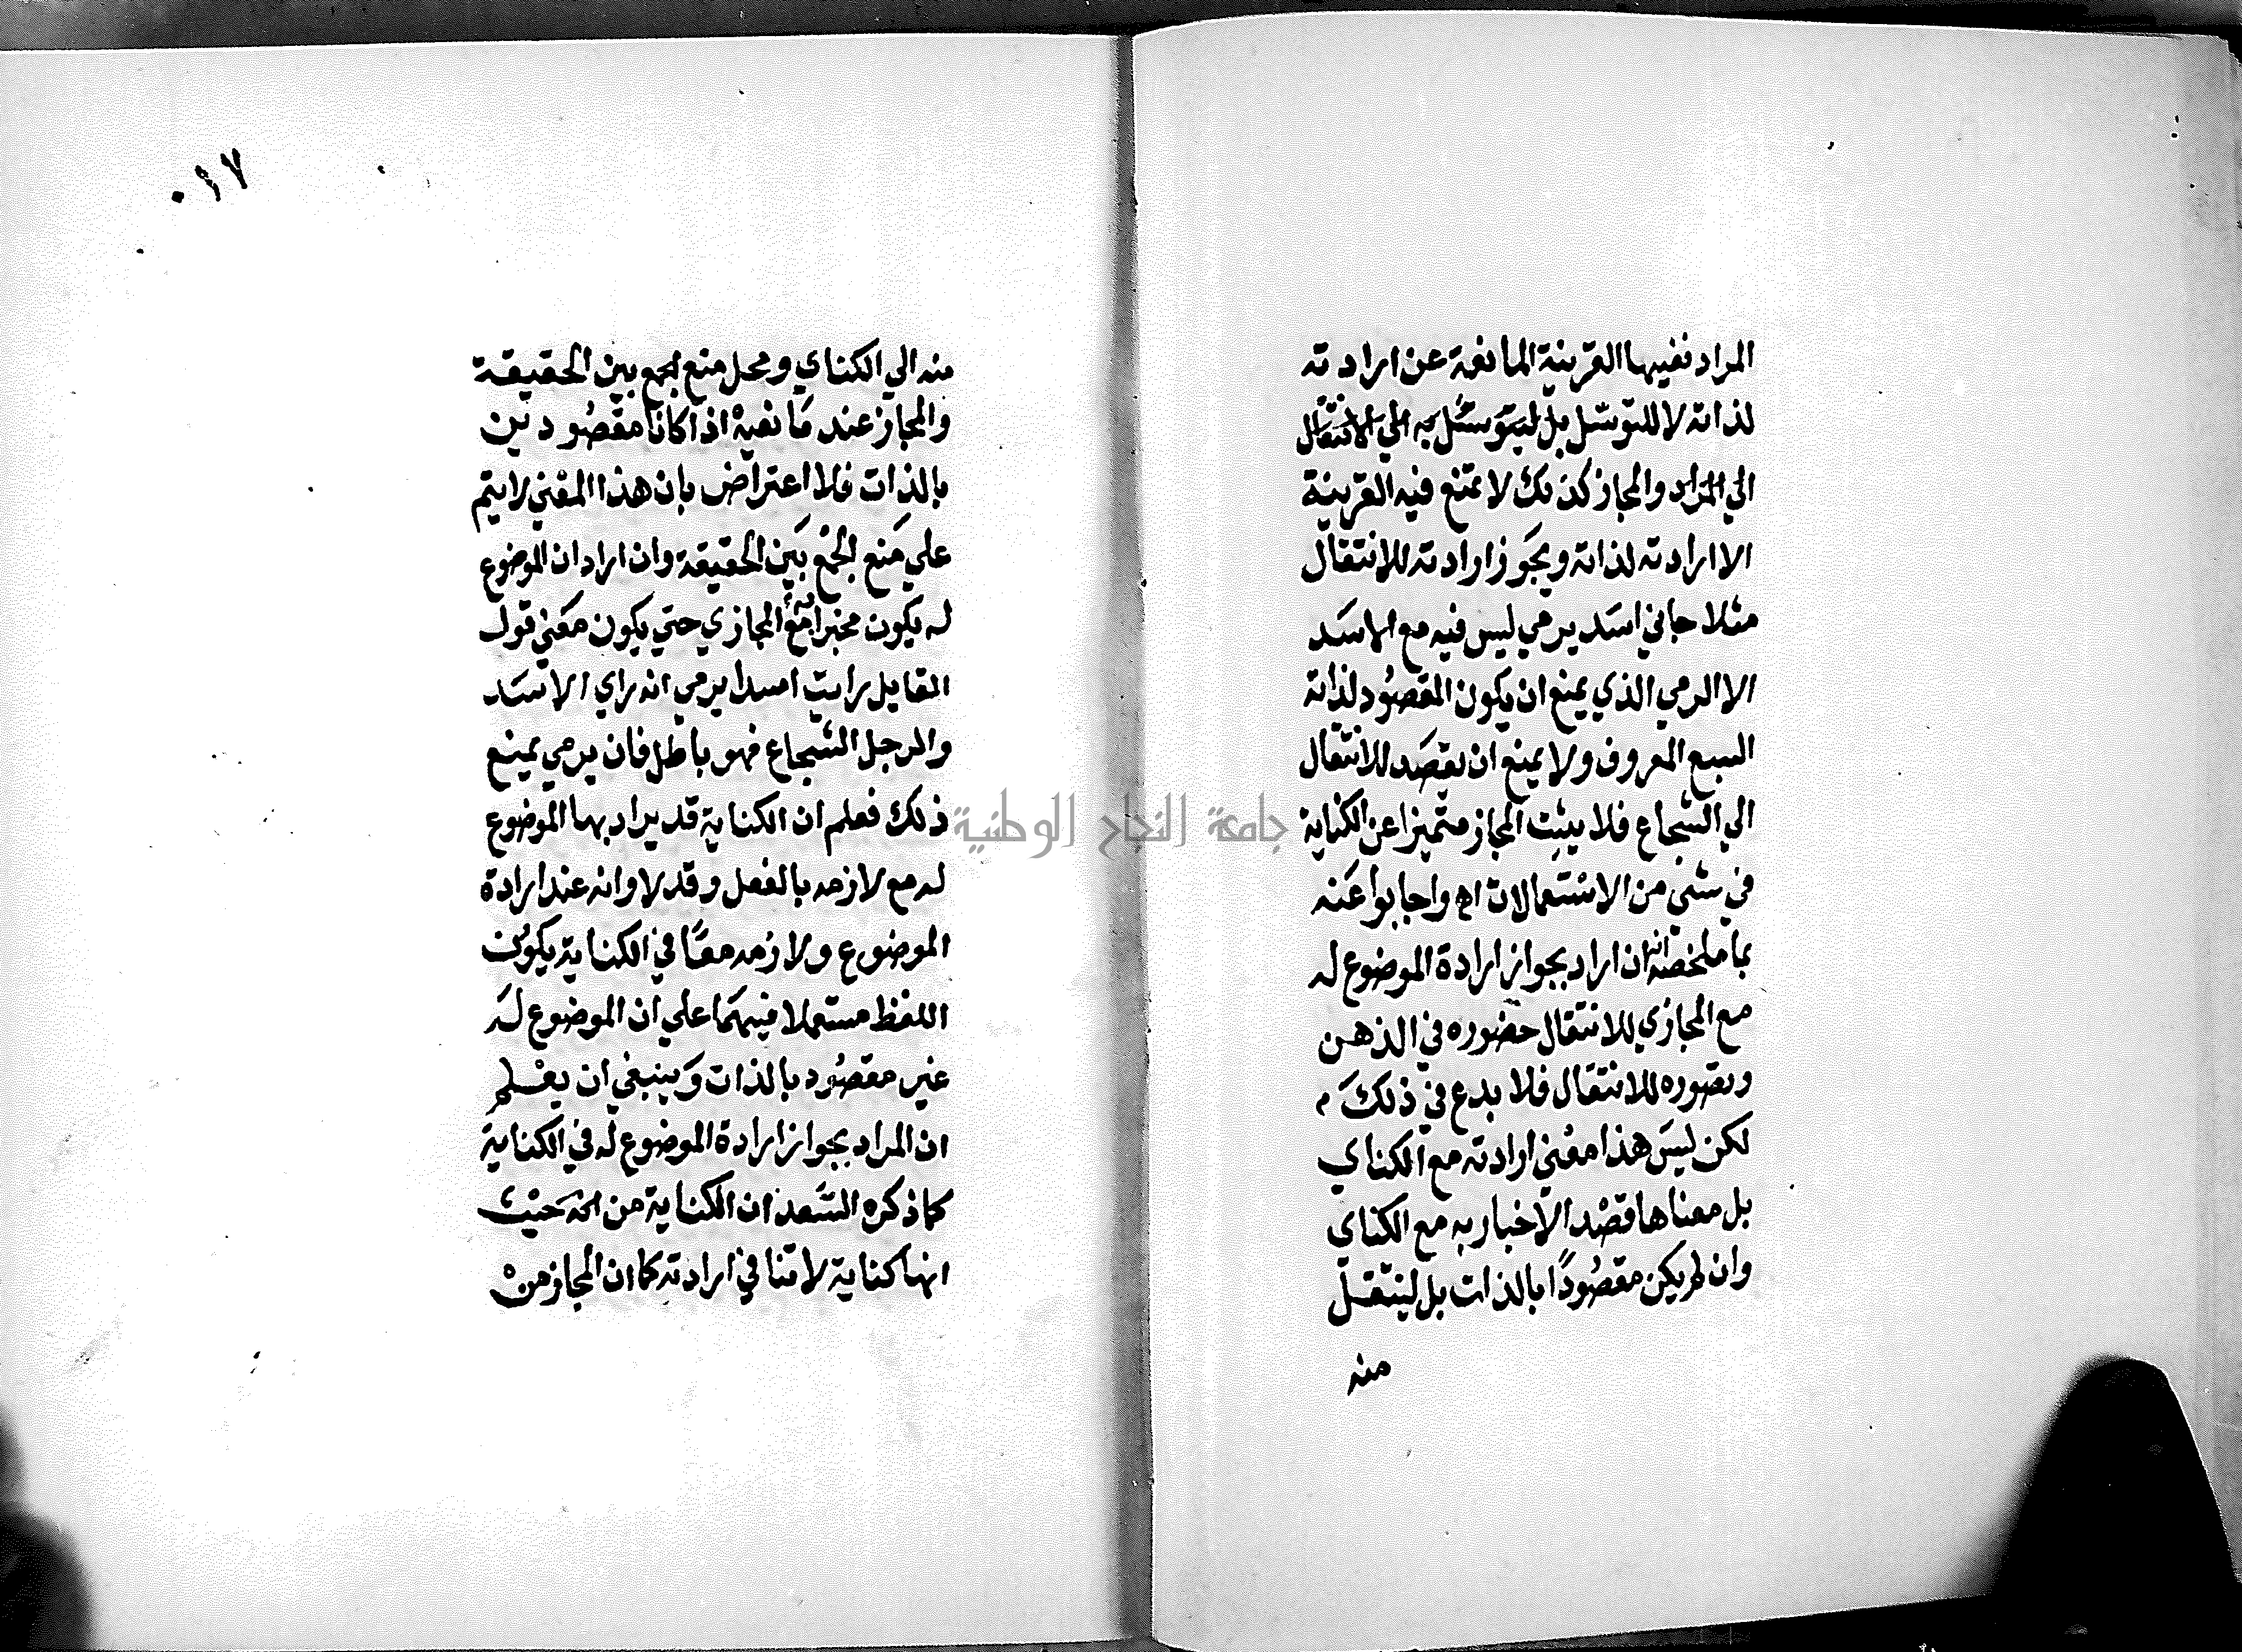 المراد نفيها القرينة المانعة عن ارادته
لذاته لا للتوسل بل ليتوسل به الي الانتقال
الي المراد والمجاز كذلك لا تمنع فيه القرينة
الا ارادته لذاته ويجوز ارادته للانتقال
مثلا جاني اسد يرمي ليس فيه مع الاسد
الا الرمي الذي يمنع ان يكون المقصود لذاته
السبع المعروف ولا يمنع ان يقصد للانتقال
الي الشجاع فلا يثبت المجاز متميزا عن الكناية
في شي من الاستعمالات اه واجابوا عنه
بما ملخصه انه ان اراد بجواز ارادة الموضوع له
مع المجازي للانتقال حضوره في الذهن
وتصوره للانتقال فلا بدع في ذلك
لكن ليس هذا معني ارادته مع الكناي
بل معناها قصد الاخبار به مع الكناي
وان لم يكن مقصودا بالذات بل لينتقل
منه
٠١٧
منه الي الكناي ومحل منع الجمع بين الحقيقة
والمجاز عند مانعيه اذا كانا مقصودين
بالذات فلا اعتراض بان هذا المعني لا يتم
علي منع الجمع بين الحقيقة وان اراد ان الموضوع
له يكون مخبرا به مع المجازي حتي يكون معني قول
القايل رايت اسدا يرمي انه راي الاسد
والرجل الشجاع فهو باطل فان يرمي يمنع
ذلك فعلم ان الكناية قد يراد بها الموضوع
له مع لازمه بالفعل وقد لا وانه عند ارادة
الموضوع ولازمه معا في الكناية يكون
اللفظ مستعملا فيهما علي ان الموضوع له
غير مقصود بالذات وينبغي ان يعلم
ان المراد بجواز ارادة الموضوع له في الكناية
كما ذكره السعد ان الكناية من حيث
انها كناية لا تنافي ارادته كما ان المجاز من
جامعة النجاح الوطنية